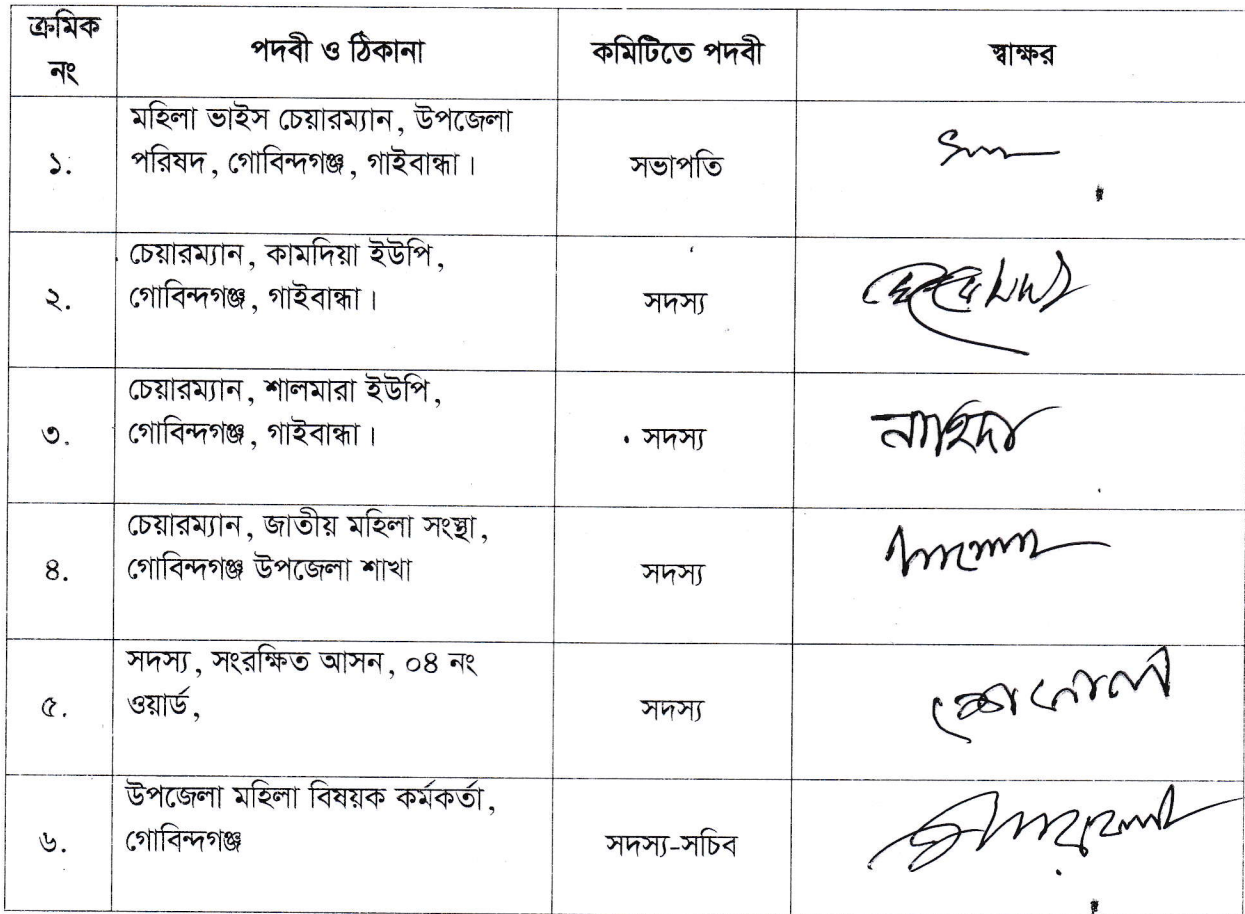 ক্রমিক নং
পদবী ও ঠিকানা
কমিটিতে পদবী
স্বাক্ষর
১.
মহিলা ভাইস চেয়ারম্যান, উপজেলা
পরিষদ, গোবিন্দগঞ্জ, গাইবান্ধা।
সভাপতি
২.
চেয়ারম্যান, কামদিয়া ইউপি,
গোবিন্দগঞ্জ, গাইবান্ধা।
সদস্য
৩.
চেয়ারম্যান, শালমারা ইউপি,
গোবিন্দগঞ্জ, গাইবান্ধা।
সদস্য
নাহিদা
৪.
চেয়ারম্যান, জাতীয় মহিলা সংস্থা,
গোবিন্দগঞ্জ উপজেলা শাখা
সদস্য
৫.
সদস্য, সংরক্ষিত আসন, ০৪ নং
ওয়ার্ড,
সদস্য
৬.
উপজেলা মহিলা বিষয়ক কর্মকর্তা,
গোবিন্দগঞ্জ
সদস্য-সচিব